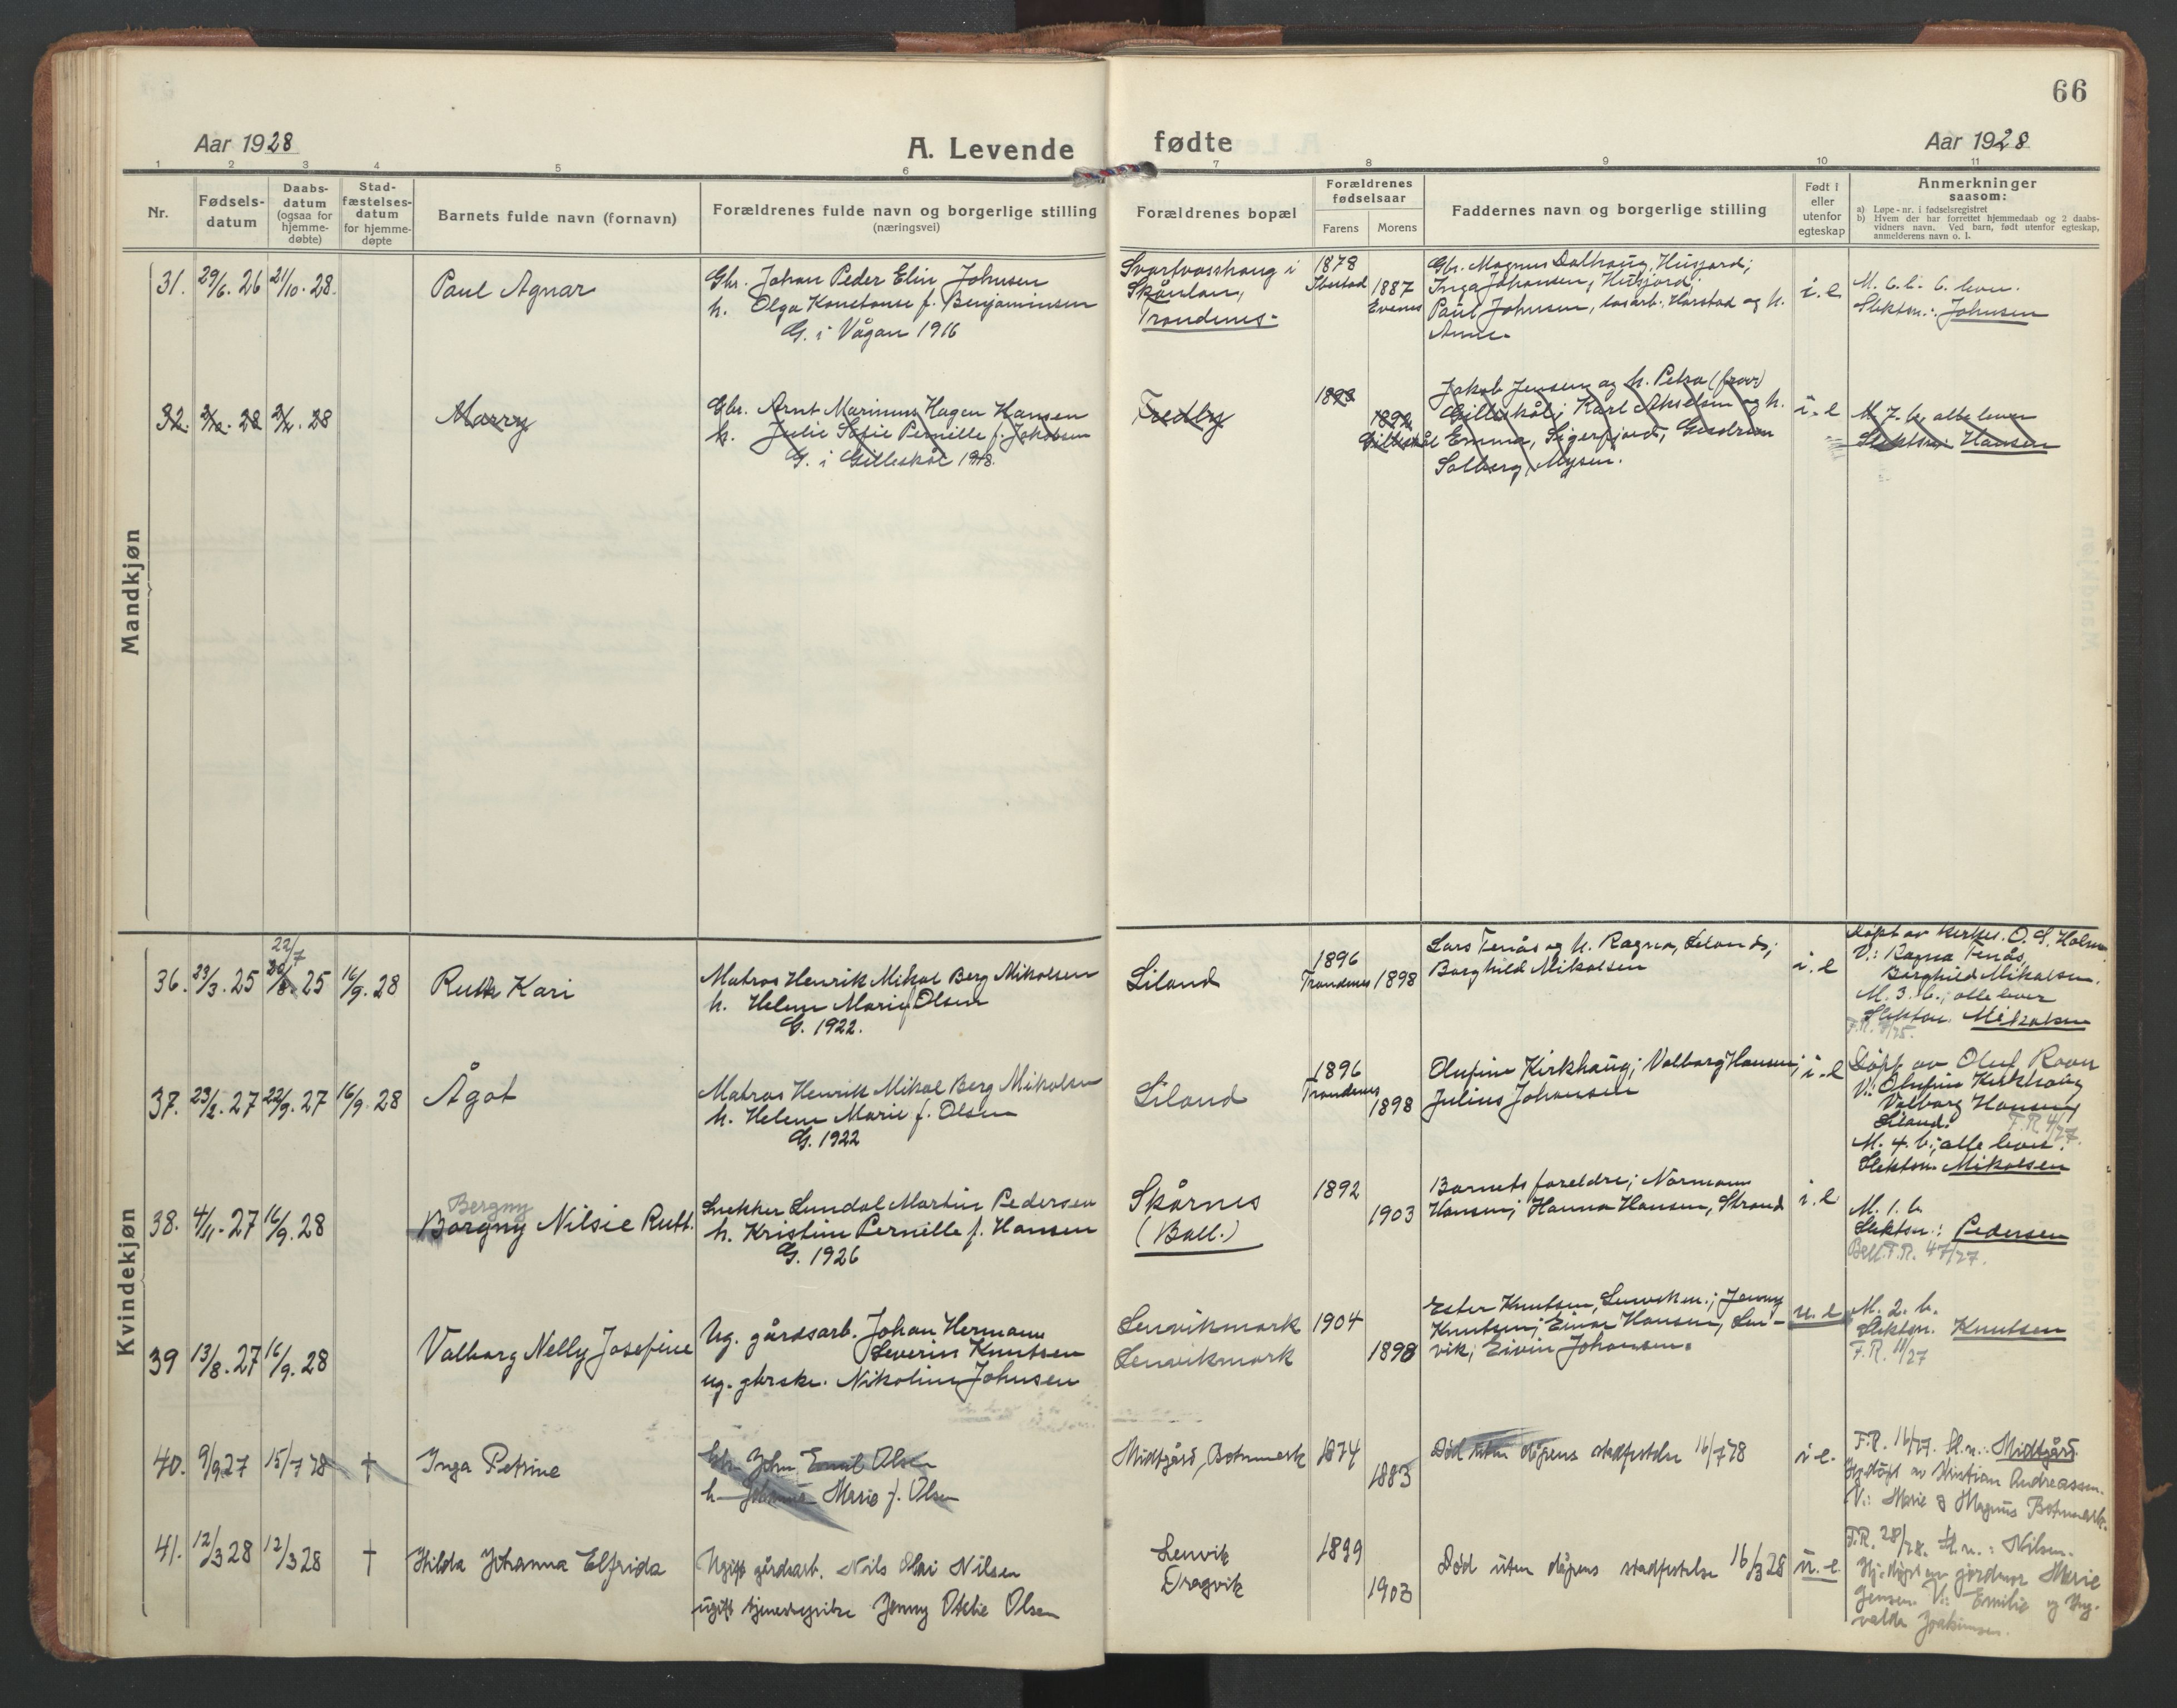 66
Aar 1928
A. Levende
fødte
Aar 1928
1 2 3 4 5 6 7 8 9 10 11
Nr.
Fødsels-
datum
Daabs-
datum
(ogsaa for
hjemme-
døbte)
Stad-
fæstelses-
datum
for hjemme-
døpte
Barnets fulde navn (fornavn)
Forældrenes fulde navn og borgerlige stilling
(næringsvei)
Forældrenes bopæl
Forældrenes
fødselsaar
Farens
Morens
Faddernes navn og borgerlige stilling
Født i
eller
utenfor
egteskap
Anmerkninger
saasom:
a) Løpe-nr. i fødselsregistret
b) Hvem der har forrettet hjemmedaab og 2 daabs-
vidners navn. Ved barn, født utenfor egteskap,
anmelderens navn o. l.
Mandkjøn
31. 29/6. 26 21/10. 28.
Paul Agnar
Gbr. Johan Peder Elin Johnsen
h. Olga Konstanse f. Benjaminsen
G. i Vågan 1916
Svartvasshaug i
Skånlan,
Trondenes.
1878
Ibestad
1887
Evenes
Gbr. Magnus Dalhaug, Husjord;
Inga Johansen, Husjord;
Paul Johnsen, løsarb. Harstad og h.
Anne.
i. e.
M. 6. b. 6. lever.
Slektsn.: Johnsen
32. 28 28
Marry
Gbr. Arnt Marinus Hagen Hansen
h. Julie Sofie Pernille f. Jakobsen
G. i Gilleskål 1918.
Fredly
1893
1892
Gilleskål
Jakob Jensen og h. Petra (frav)
Gilleskål; Karl Akselsen og h.
Emma, Sigerfjord;
Solberg, Mysen.
i. e
M. 7. b. alle lever
Slektsn: Hansen
Kvindekjøn
36. 23/3. 25 22/7 25 16/9. 28
Ruth Kari
Matros Henrik Mikal Berg Mikalsen
h. Helene Marie f. Olsen
G. 1922.
Liland
1896
Trondenes
1898
Lars Tenås og h. Ragna, Liland;
Borghild Mikalsen
i. e
Døpt av kirkes. O. S. Holm
V.: Ragna Tenås,
Borghild Mikalsen.
M. 3. b.; alle lever
Slektsn. Mikalsen
37. 23/2. 27 22/9. 27 16/9. 28
Ågot
Matros Henrik Mikal Berg Mikalsen
h. Helene Marie f. Olsen
G. 1922
Liland
1896
Trondenes
1898
Olufine Kirkhaug; Valborg Hansen;
Julius Johansen
i. e
Døpt av Oluf Roan
V.: Olufine Kirkhaug
Valborg Hansen,
Liland. F.R. 4/27.
M. 4. b; alle lever.
Slektsn. Mikalsen
38. 4/11. 27 16/9. 28
Bergny
Borgny Nilsie Rutt.
Snekker Lundal Martin Pedersen
h. Kristine Pernille f. Hansen
G. 1926
Skårnes
(Ball.)
1892
1903
Barnets foreldre; Normann
Hansen; Hanna Hansen, Strand
i. e
M. 1. b.
Slektsn.: Pedersen
Ball. F.R. 47/27.
39 13/8. 27 16/9. 28
Valborg Nelly Josefine
Ug. gårdsarb. Johan Hermann
Severin Knutsen
ug. gbrsk. Nikoline Johnsen
Lenvikmark
Lenvikmark
1904
1898
Ester Knutsen, Lenvikm.; Jenny
Knutsen; Einar Hansen, Len-
vik; Eivin Johansen.
u. e
M. 2. b.
Slektsn. Knutsen
F.R. 11/27
40. 9/9 27 15/7 28 †
Inga Petrine
Gbr. John Emil Olsen
h. Johanna Marie f. Olsen
Midtgård, Botnmark
1874
1883
Død uten dåpens stadfestelse 16/7 28
i e.
F.R. 16/27. Sl.n.: Midtgård
Hj.døpt av Kristian Andreassen.
V.: Marie & Magnus Botnmark.
41. 12/3 28 12/3 28 †
Hilda Johanna Elfrida
Ugift gårdsarb. Nils Olai Nilsen
ugift tjenestepike Jenny Otelie Olsen
Lenvik
Dragvik
1899
1903
Død uten dåpens stadfestelse 16/3 28
u. e.
F.R. 28/28. Sl.n.: Nilsen.
Hj.døpt av jordmor Marie
Jensen. V.: Emilie og Ing-
valda Joakimsen.